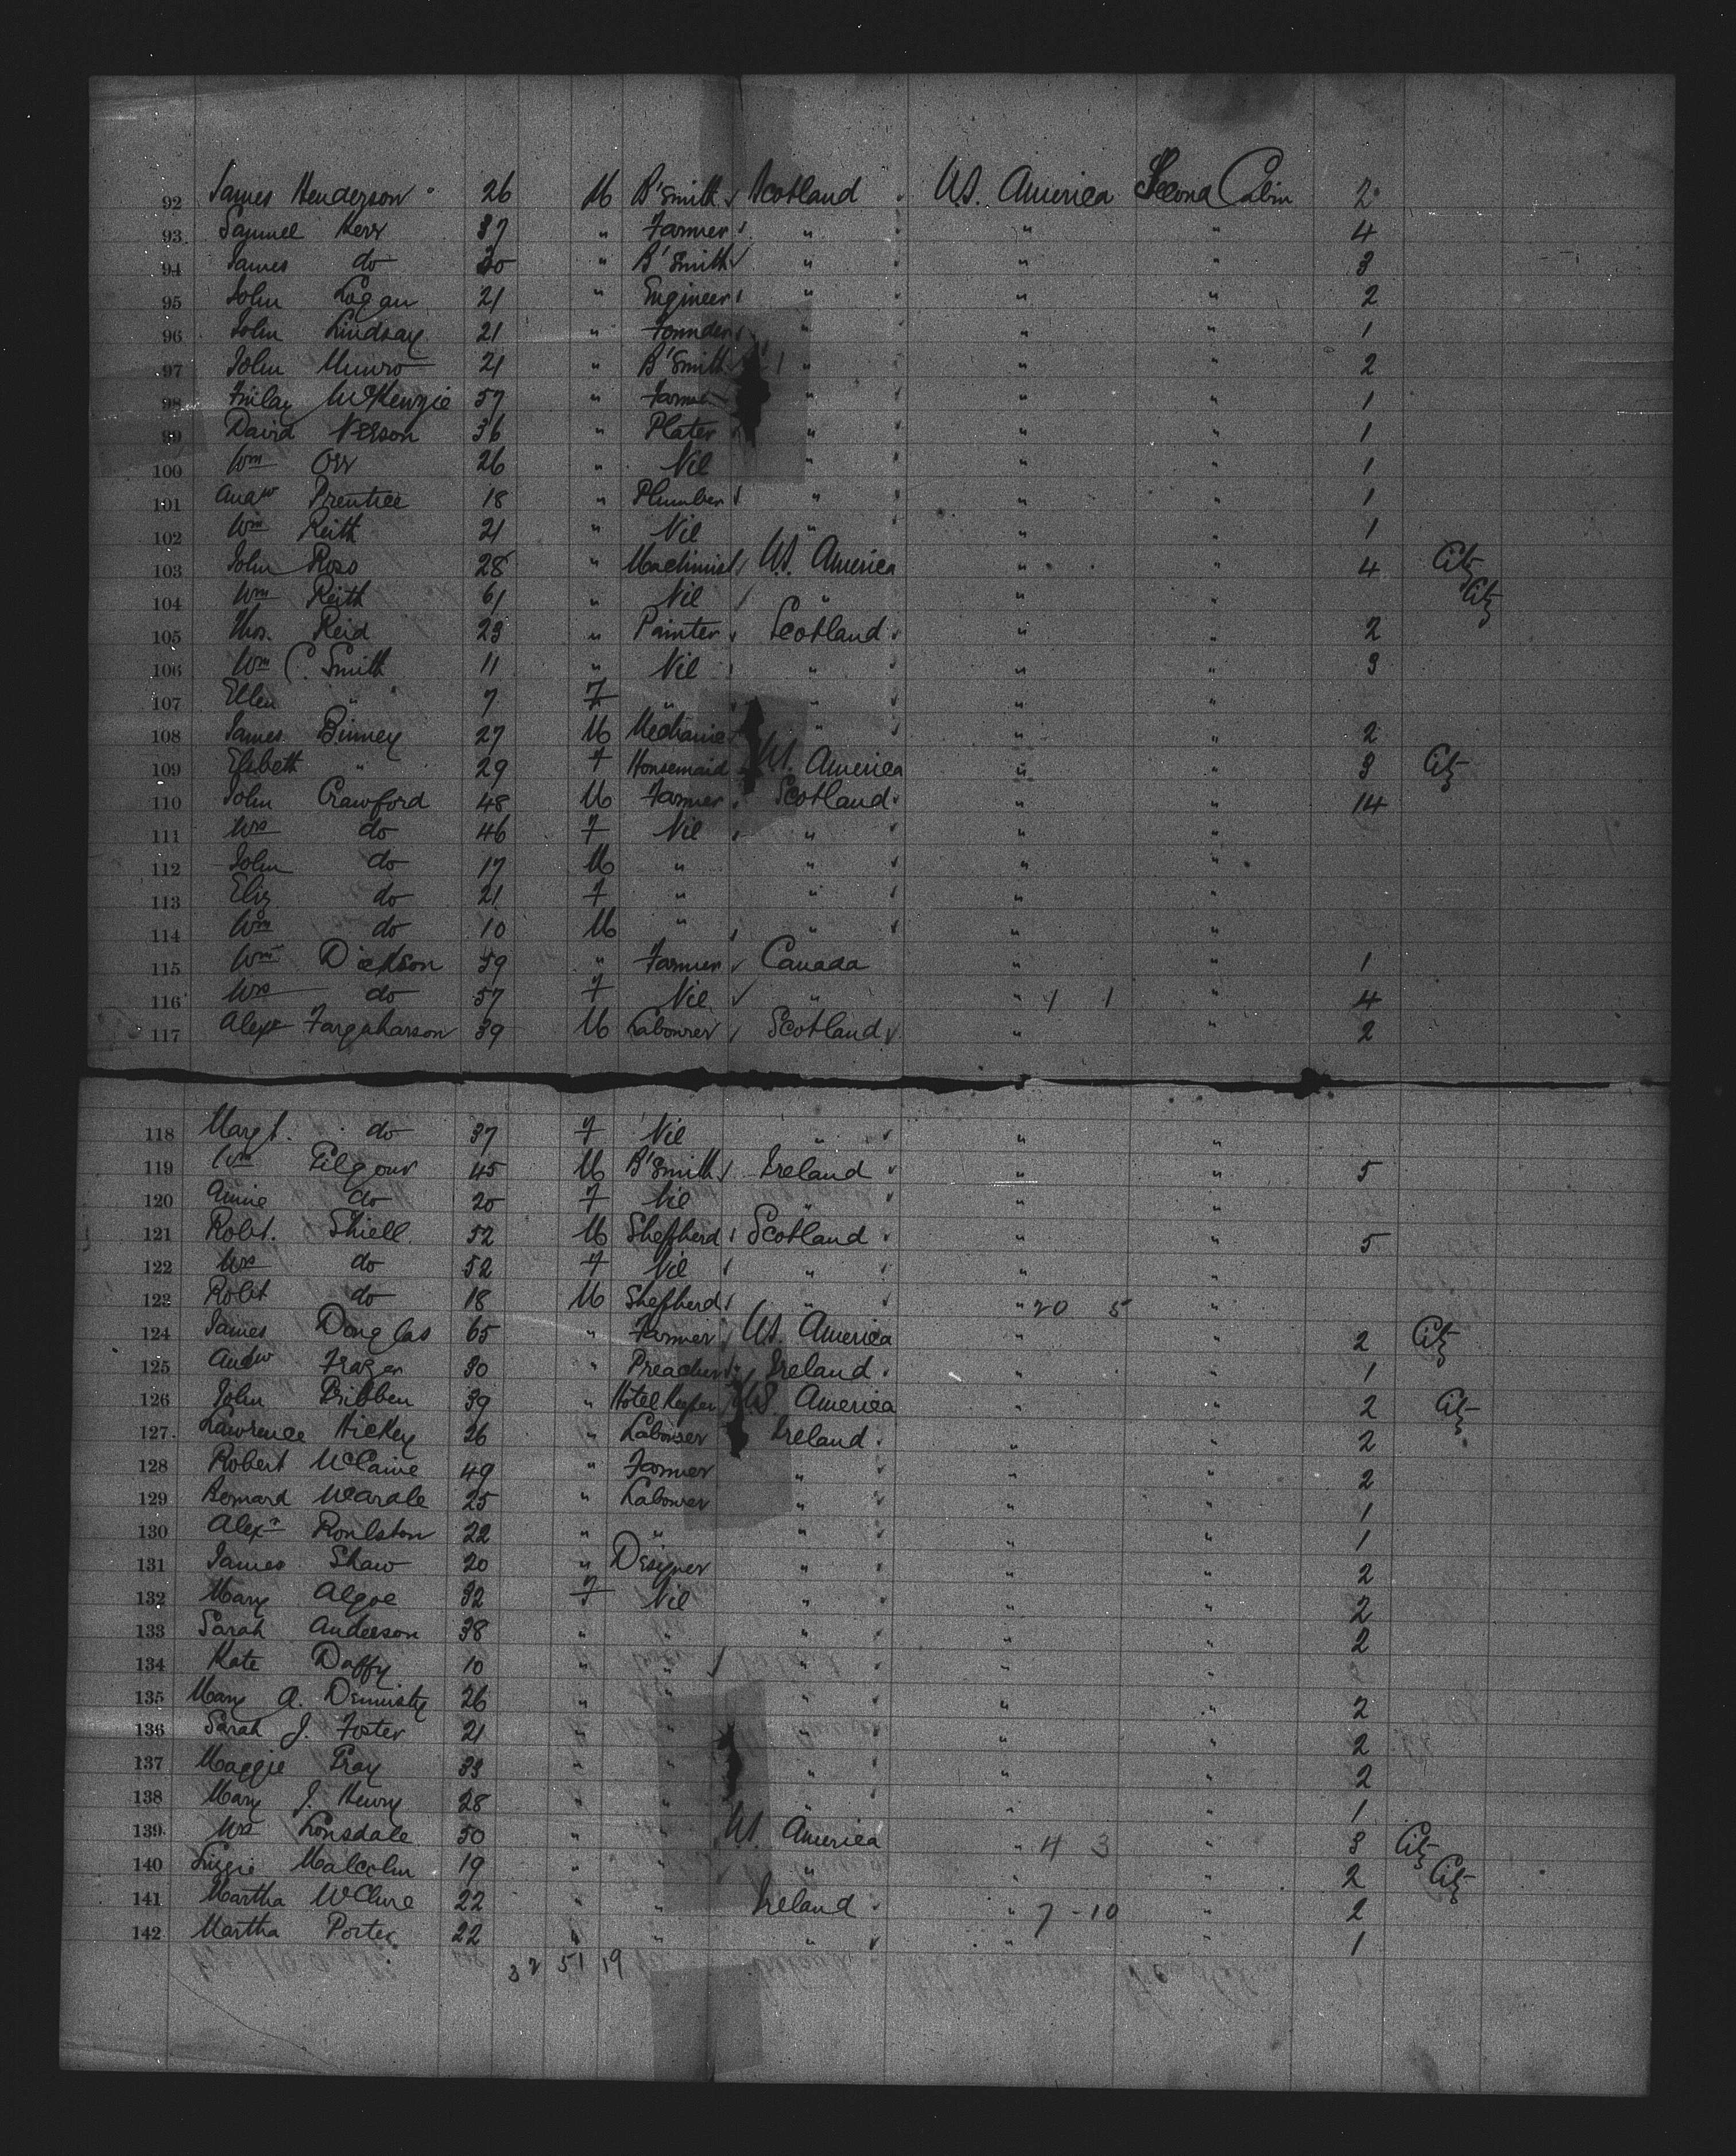 92 James Henderson 26 M B'Smith Scotland U.S. America Second Cabin 2
93 Samuel Kerr 37 " Farmer " " " 4
94 James do 30 " B'Smith " " " 3
95 John Logan 21 " Engineer " " " 2
96 John Lindsay 21 " Founder " " " 1
97 John Munro 21 " B'Smith " " " 2
98 Finlay McKenzie 57 " Farmer " " " 1
99 David 36 " Plater " " " 1
100 Wm Orr 26 " Nil " " " 1
101 Andw Prentice 18 " Plumber " " " 1
102 Wm Reith 21 " Nil " " " 1
103 John Ross 28 " Machinist U.S. America " " 4 Citz
104 Wm Reith 61 " Nil " " " Citz
105 Thos. Reid 23 " Painter Scotland " " 2
106 Wm C. Smith 11 " Nil " " " 3
107 Ellen " 7 F " " " "
108 James Binney 27 M Mechanic " " " 2
109 Elsbeth " 29 F Housemaid U.S. America " " 3 Citz
110 John Crawford 48 M Farmer Scotland " " 14
111 Mrs do 46 F Nil " " "
112 John do 17 M " " " "
113 Eliz do 21 F " " " "
114 Wm do 10 M " " " "
115 Wm Dickson 59 " Farmer Canada " " 1
116 Mrs do 57 F Nil " " 1 1 " 4
117 Alexr Farquharson 39 M Labourer Scotland " " 2
118 Margt. do 37 F Nil " " "
119 Wm Gilgour 45 M B'Smith Ireland " " 5
120 Annie do 20 F Nil " " "
121 Robt. Shiell 52 M Shepherd Scotland " " 5
122 Mrs do 52 F Nil " " "
123 Robt do 18 M Shepherd " " 20 5 "
124 James Douglas 65 " Farmer U.S. America " " 2 Citz
125 Andw Frazer 30 " Preacher Ireland " " 1
126 John Gribben 39 " Hotel Keeper U.S. America " " 2 Citz
127 Lawrence Hickey 26 " Labourer Ireland " " 2
128 Robert McCaine 49 " Farmer " " " 2
129 Bernard McArdle 25 " Labourer " " " 1
130 Alexr Roulston 22 " " " " " 1
131 James Shaw 20 " Designer " " " 2
132 Mary Algoe 32 F Nil " " " 2
133 Sarah Anderson 38 " " " " " 2
134 Kate Daffy 10 " " " " "
135 Mary A. Dennisty 26 " " " " " 2
136 Sarah J. Foster 21 " " " " " 2
137 Maggie Gray 33 " " " " " 2
138 Mary J. Henry 28 " " " " " 1
139 Mrs Lonsdale 50 " " U.S. America " 4 3 " 3 Citz
140 Lizzie Malcolm 19 " " " " " 2 Citz
141 Martha McClure 22 " " Ireland " 7 - 10 " 2
142 Martha Porter 22 " " " " " 1
32 51 19